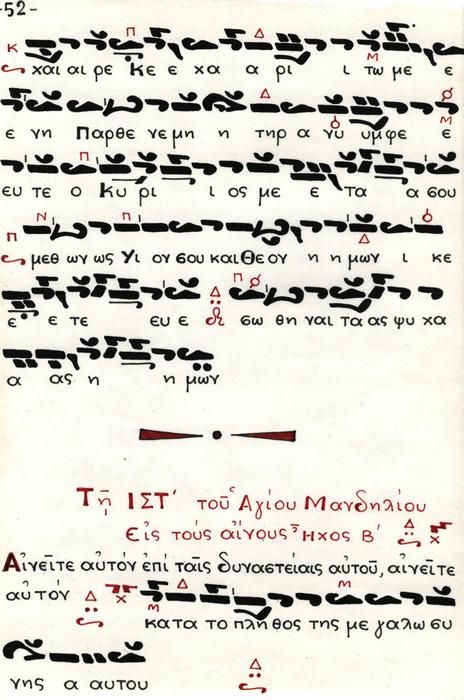 -52-
και αι ρε Κε ε χα α ρι ι τω με ε
ε νη Παρθε νε μη η τηρ α νυ υμφε ε
ευ τε ο Κυ ρι ι ος με ε τα α σου
μεθ ων ως Υι ον σου και Θε ον η η μων ι κε
ε ε τε ευ ε σω θη ναι τα ας ψυ χα
α ας η η μων
Τῇ ΙΣΤ' τοῦ Ἁγίου Μανδηλίου
Εἰς τοὺς αἴνους Ἦχος Β'
Αἰνεῖτε αὐτὸν ἐπὶ ταῖς δυναστείαις αὐτοῦ, αἰνεῖτε
αὐτὸν κατα το πλη θος της με γαλω συ
νης α αυτου